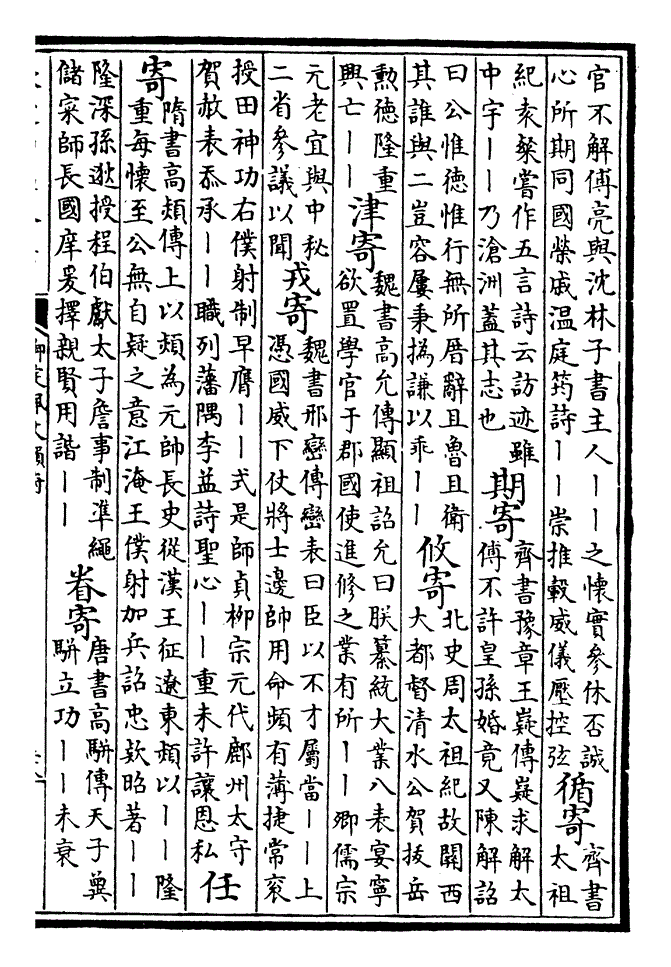 官不解傅亮與沈林子書主人丨丨之懷實參休否誠
心所期同國榮戚温庭筠詩丨丨崇推轂威儀壓控弦
循寄
齊書
太祖
紀袁粲嘗作五言詩云訪迹雖
中宇丨丨乃滄洲蓋其志也
期寄
齊書豫章王嶷傳嶷求解太
傅不許皇孫婚竟又陳解詔
曰公惟德惟行無所厝辭且魯且衛
其誰與二豈容屢秉撝謙以乖丨丨
攸寄
北史周太祖紀故關西
大都督清水公賀拔岳
勲德隆重
興亡丨丨
津寄
魏書高允傳顯祖詔允曰朕纂統大業八表宴寧
欲置學官于郡國使進修之業有所丨丨卿儒宗
元老宜與中秘
二省參議以聞
戎寄
魏書邢巒傳巒表曰臣以不才屬當丨丨上
憑國威下仗將士邊帥用命頻有薄捷常衮
授田神功右僕射制早膺丨丨式是師貞柳宗元代鄜州太守
賀赦表忝承丨丨職列藩隅李益詩聖心丨丨重未許讓恩私
任
寄
隋書高熲傳上以熲為元帥長史從漢王征遼東熲以丨丨隆
重每懷至公無自疑之意江淹王僕射加兵詔忠欵昭著丨丨
隆深孫逖授程伯獻太子詹事制準繩
儲寀師長國庠爰擇親賢用諧丨丨
眷寄
唐書高駢傳天子兾
駢立功丨丨未衰